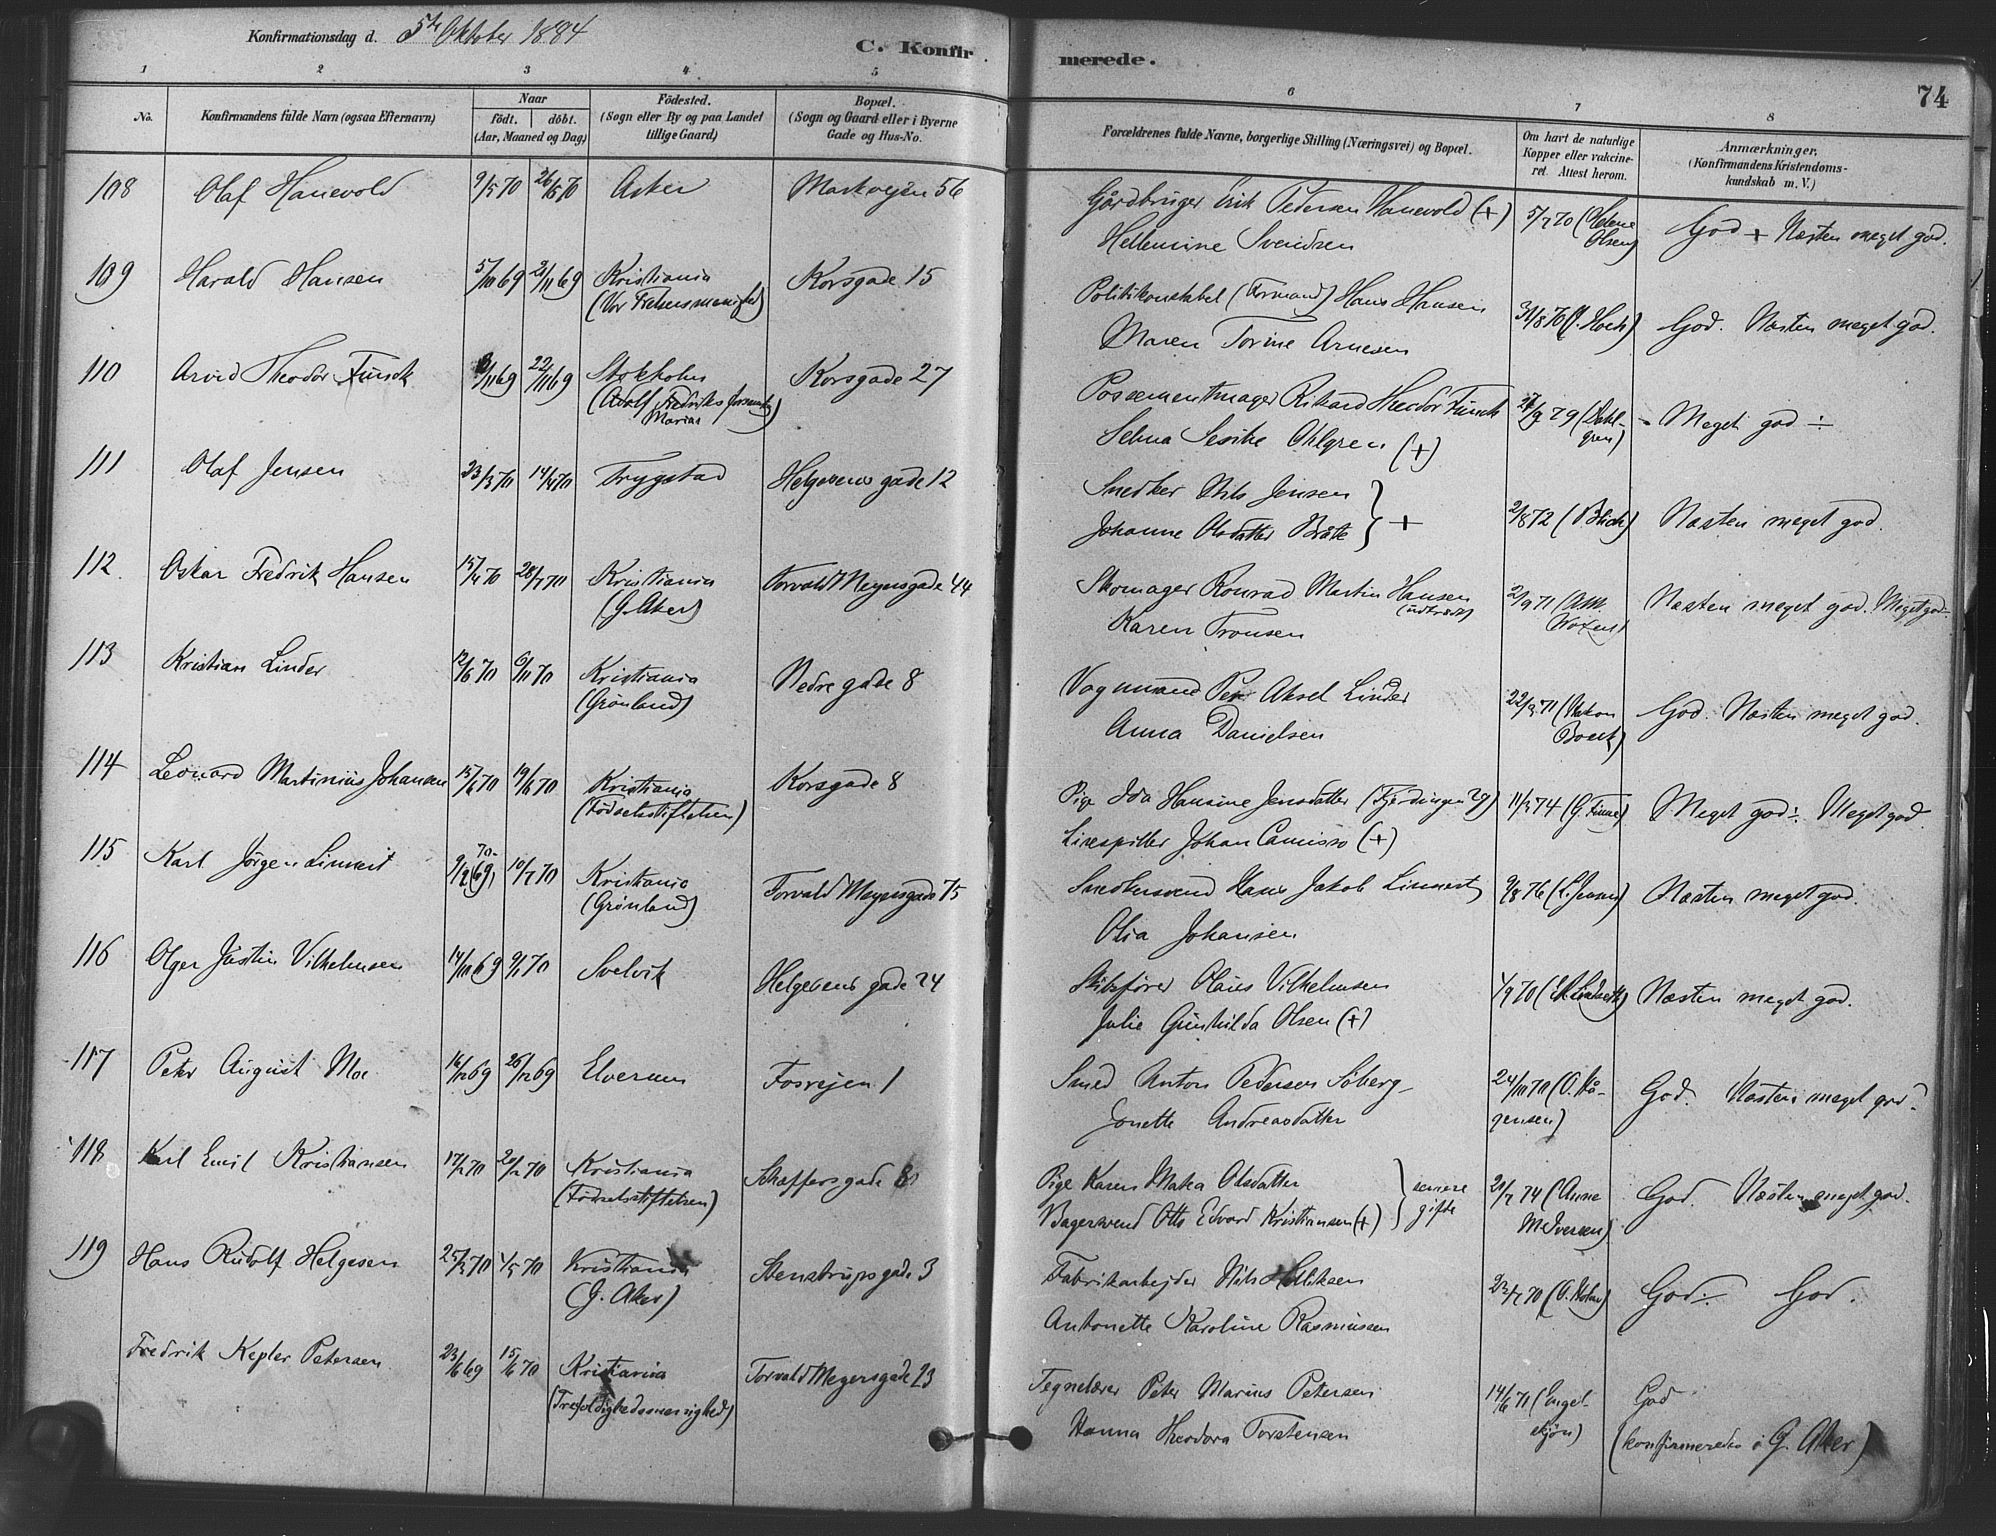 Konfirmationsdag d. 5te Oktober 1884
C. Konfir
merede.
74
1 2 3 4 5 6 7 8
No.
Konfirmandens fulde Navn (ogsaa Efternavn)
Naar
födt. döbt.
(Aar, Maaned og Dag)
Födested.
(Sogn eller By og paa Landet
tillige Gaard)
Bopæl.
(Sogn og Gaard eller i Byerne
Gade og Hus-No.
Forældrenes fulde Navne, borgerlige Stilling (Næringsvei) og Bopæl.
Om havt de naturlige
Kopper eller vakcine-
ret. Attest herom.
Anmærkninger.
(Konfirmandens Kristendoms-
kundskab m. V.)
108 Olaf Hanevold 9/5 70 26/5 70 Asker Markvejen 56
Gårdbruger Erik Pedersen Hanevold (+) 5/7 70 (Helene God + Næsten meget god.
Hellemine Svendsen Olsen)
109 Harald Hansen 5/10 69 21/11 69 Kristiania Korsgade 15
(Vor Frelsersmenighed)
Politikonstabel (Formand) Hans Hansen 31/8 70 (J. Hoch) God. Næsten meget god.
Maren Torine Arnesen
110 Arvid Theodor Funck /11 69 22/11 69 Stokholm Korsgade 27
(Adolf Fredriks forsamling
Marias
Possementmager Rikard Theodor Funck 27/9 79 (Dahl- Meget god ÷
Selma Sesike Ohlgren (+) gren)
111 Olaf Jensen 23/3 70 14/4 70 Trygstad Helgesens gade 12
Snedker Nils Jensen } + 2/8 72 (Blich) Næsten meget god.
Johanne Olsdatter Bråte
112. Oskar Fredrik Hansen 15/4 70 28/7 70 Kristiania Torvald Meyersgade 44
(G. Aker)
Skomager Konrad Martin Hansen 2/9 71 (AM. Næsten meget god. Meget god
(udtrådt)
Karen Tronsen
113 Kristian Linder 12/6 70 6/11 70 Kristiania Nedre gade 8
(Grønland)
Vognmand Per Aksel Linder 22/9 71 (Håkon God. Næsten meget god.
Anna Danielsen Boeck)
114 Leonard Martinius Johansen 15/6 70 19/6 70 Kristiania Korsgade 8
(Fødselsstiftelsen)
Pige Ida Hansine Jensdatter (Fjerdingen 29) 11/3 74 (G. Finne) Meget god÷. Meget god.
Linespiller Johan Camisso (+)
115 Karl Jörgen Linnert 9/2 (69) 70 10/7 70 Kristiania Torvald Meyersgade 75
(Grønland)
Snedkersvend Hans Jakob Linnert 9/8 76 (L. Jensen) Næsten meget god.
Olia Johansen
116 Olger Justin Vilhelmsen 14/10 69 9/1 70 Svelvik Helgesens gade 24
Skibsfører Olaus Vilhelmsen 1/9 70 (EK Lindseth) Næsten meget god.
Julie Gunhilda Olsen (+)
117 Peter August Moe 16/12 69 26/12 69 Elverum Fosvejen 1
Smed Anton Pedersen Soberg 24/10 70 (O. Hå- God. Næsten meget god.
Jonette Andreasdatter gensen)
118 Karl Emil Kristiansen 17/2 70 20/2 70 Kristiania Schæffersgade 8
(Fødselsstiftelsen)
Pige Karen Matea Olsdatter } senere 21/7 74 (Anne God. Næsten meget god.
Bagersvend Otto Edvard Kristiansen (+) gifte M. Iversen)
119 Hans Rudolf Helgesen 25/3 70 1/5 70 Kristiania Stenstrupsgade 3
(G. Aker)
Fabrikarbejder Nils Helliksen 23/7 70 (O. Holm) God÷. God.
Antonette Karoline Rasmussen
Fredrik Kepler Petersen 23/6 69 15/6 70 Kristiania Torvald Meyersgade 23
(Trefoldighedsmenighed)
Tegnelærer Peter Marius Petersen 14/6 71 (Engel- God
Hanna Theodora Torstensen skjøn) (konfirmeredes i G. Aker)